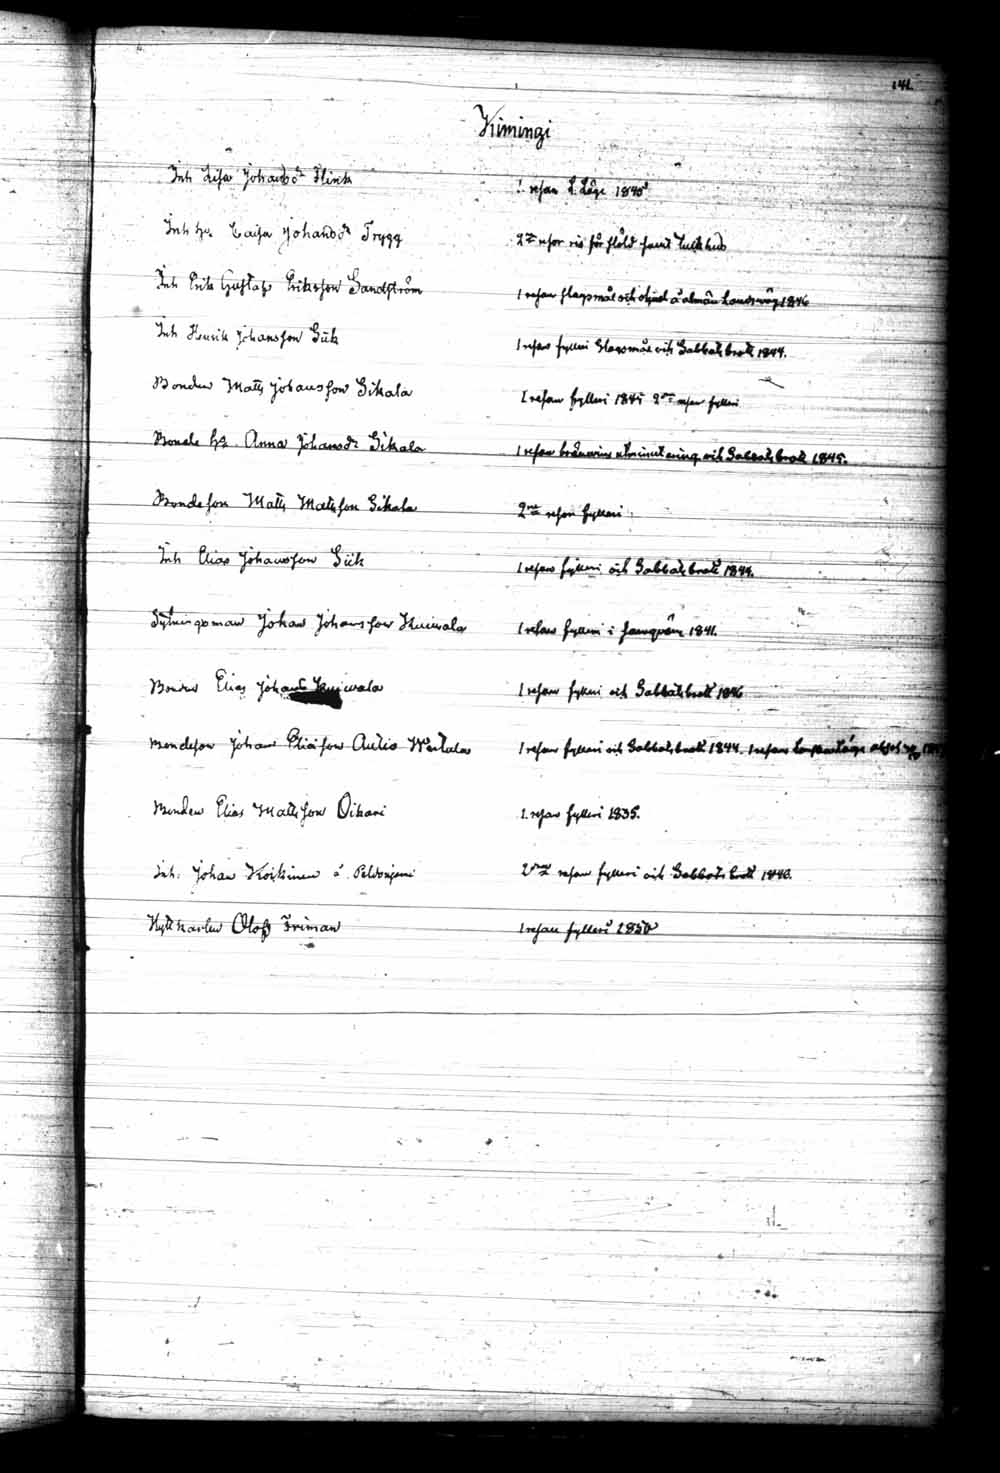 141.
Kimingi
Inh Lisa Johansdr Flink 1 resan L. Läge 1840
Inh hu Caisa Johansdr Trygg 2dra resor ris för stöld samt tukthus
Inh Erik Gustaf Eriksson Sandström 1 resan slagsmål och å almän Landsväg 1846
Inh Henrik Johansson Siik 1 resan fylleri Slagsmål och Sabbatsbrott 1844.
Bonden Matts Johansson Sikala 1 resan fylleri 1845 2dra resan fylleri
Bonde hu Anna Johansdr Sikala 1 resan bränvins utminutering och Sabbatsbrott 1845.
Bondeson Matts Mattsson Sikala 2dra resan fylleri
Inh Elias Johansson Siik 1 resan fylleri och Sabbatsbrott 1844.
Sytningsman Johan Johansson Kuivala 1 resan fylleri i 1841.
Bonden Elias Johans Kuivala 1 resan fylleri och Sabbatsbrott 1846
Bondeson Johan Eliasson Autio 1 resan fylleri och Sabbatsbrott 1844. 1 resan
Bonden Elias Mattsson Oikari 1. resan fylleri 1835.
Inh: Johan Koikinen å 2dra resan fylleri och Sabbats brott 1843.
Hyttkarlen Olof Friman 1 resan fylleri 1850